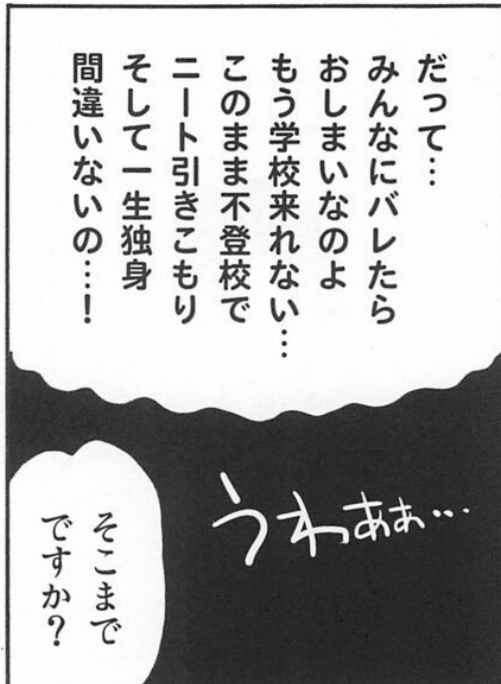 だって…
みんなにバレたら
おしまいなのよ
もう学校来れない…
このまま不登校で
ニート引きこもり
そして一生独身
間違いないの…！
うわあぁ…
そこまで
ですか？